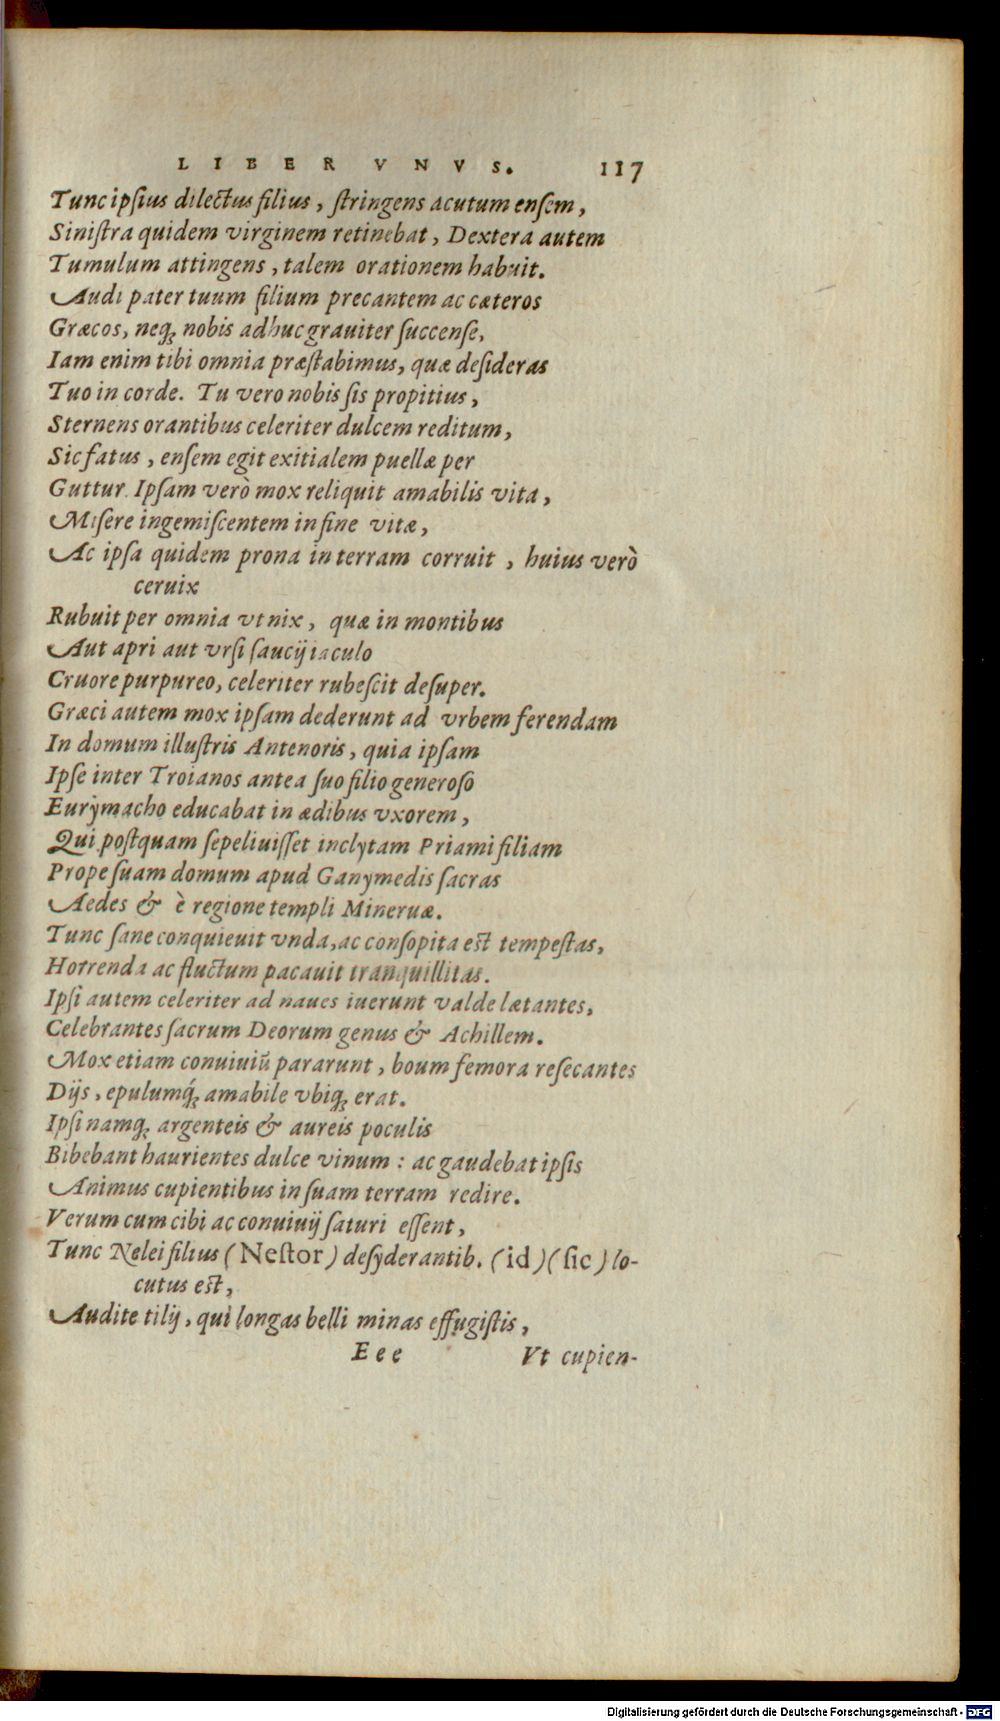 LIBER VNVS. 117
Tunc ipſius dilectus filius, ſtringens acutum enſem,
Siniſtra quidem virginem retinebat, Dextera autem
Tumulum attingens, talem orationem habuit.
Audi pater tuum filium precantem ac cæteros
Græcos, neq; nobis adhuc grauiter ſuccenſe,
Iam enim tibi omnia præſtabimus, quæ deſideras
Tuo in corde. Tu vero nobis ſis propitius,
Sternens orantibus celeriter dulcem reditum,
Sic fatus, enſem egit exitialem puellæ per
Guttur. Ipſam verò mox reliquit amabilis vita,
Miſere ingemiſcentem in fine vitæ,
Ac ipſa quidem prona in terram corruit, huius verò
ceruix
Rubuit per omnia vt nix, quæ in montibus
Aut apri aut vrſi ſaucij iaculo
Cruore purpureo, celeriter rubeſcit deſuper.
Græci autem mox ipſam dederunt ad vrbem ferendam
In domum illuſtris Antenoris, quia ipſam
Ipſe inter Troianos antea ſuo filio generoſo
Eurymacho educabat in ædibus vxorem,
Qui poſtquam ſepeliuiſſet inclytam Priami filiam
Prope ſuam domum apud Ganymedis ſacras
Aedes & è regione templi Mineruæ.
Tunc ſane conquieuit vnda, ac conſopita eſt tempeſtas,
Horrenda ac fluctum pacauit tranquillitas.
Ipſi autem celeriter ad naues iuerunt valde lætantes,
Celebrantes ſacrum Deorum genus & Achillem.
Mox etiam conuiuiũ pararunt, boum femora reſecantes
Dijs, epulumq́; amabile vbiq; erat.
Ipſi namq; argenteis & aureis poculis
Bibebant haurientes dulce vinum : ac gaudebat ipſis
Animus cupientibus in ſuam terram redire.
Verum cum cibi ac conuiuij ſaturi eſſent,
Tunc Nelei filius (Neſtor) deſyderantib. (id)(ſic) lo-
cutus eſt,
Audite tilij, qui longas belli minas effugiſtis,
Eee Vt cupien-
Digitalisierung gefördert durch die Deutsche Forschungsgemeinschaft - DFG